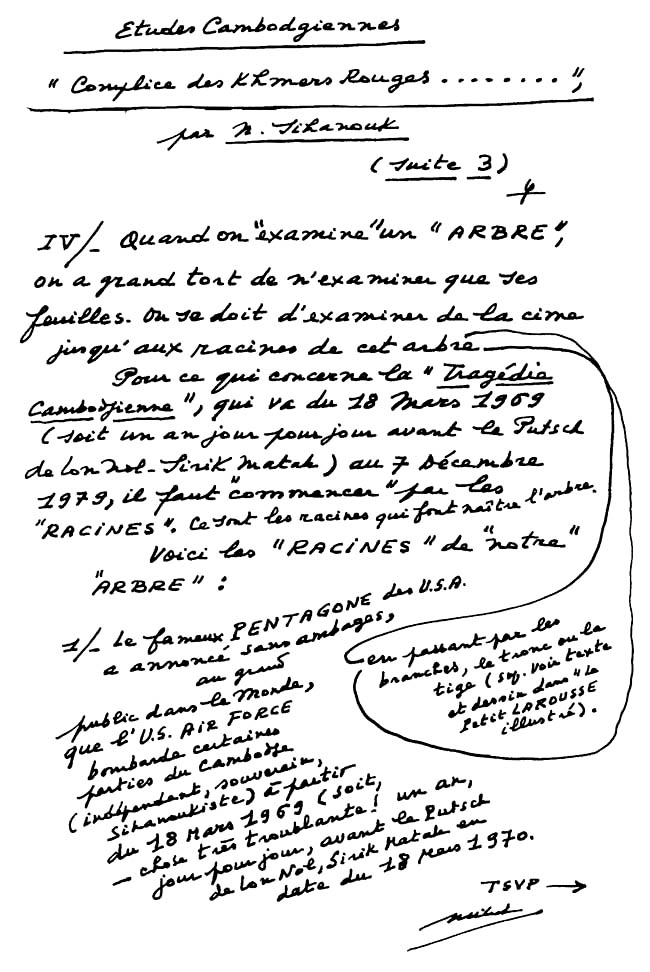 Etudes Cambodgiennes
" Complice des Khmers Rouges ........ ",
par N. Sihanouk
( suite 3 )
IV/- Quand on "examine" un "ARBRE",
on a grand tort de n'examiner que ses
feuilles. On se doit d'examiner de la cime
jusqu'aux racines de cet arbre
Pour ce qui concerne la "Tragédie
Cambodgienne", qui va du 18 Mars 1969
( soit un an jour pour jour avant le Putsch
de Lon Nol-Sirik Matak ) au 7 Décembre
1979, il faut "commencer" par les
"RACINES". Ce sont les racines qui font naître l'arbre.
Voici les "RACINES" de "notre"
"ARBRE" :
1/- Le fameux PENTAGONE des U.S.A.
a annoncé sans ambages,
au grand
public dans le Monde,
que l'U.S. AIR FORCE
bombarde certaines
parties du Cambodge
(indépendant, souverain,
Sihanoukiste) à partir
du 18 Mars 1969 (soit,
- chose très troublante! un an,
jour pour jour, avant le Putsch
de Lon Nol, Sirik Matak en
date du 18 Mars 1970.
en passant par les
branches, le tronc ou la
tige (sq. voir texte
et dessin dans "Le
Petit LAROUSSE
illustré).
TSVP →